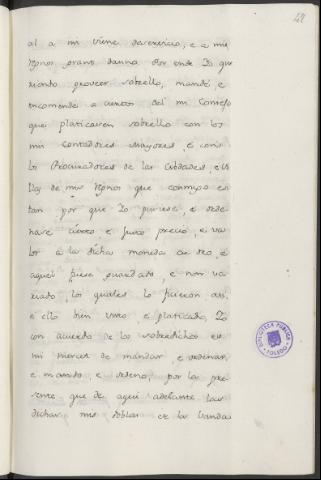 48
al a mi viene deservicio, e a mis
Regnos grand danno. Por ende Yo que
riendo proveer sobrello, mandé, e
encomendé a ciertos del mi Consejo
que platicasen sobrello con los
mis contadores mayores e con
los Procuradores de las Cibdades, e Vi
llas de mis Regnos que conmigo es
tan por que Yo pusiese, e orde
nase cierto, e justo precio, e va
lor à la dicha moneda de oro, e
aquel fuese guardado, e non va
riado, los quales lo ficieron asi,
e ello bien visto, e platicado, Yo
con acuerdo de los sobredichos es
mi merced de mandar, e ordenar,
e mando, e ordeno, por la pre-
sente que de aqui adelante las
dichas mis doblas de la banda
BIBLIOTECA PUBLICA
TOLEDO